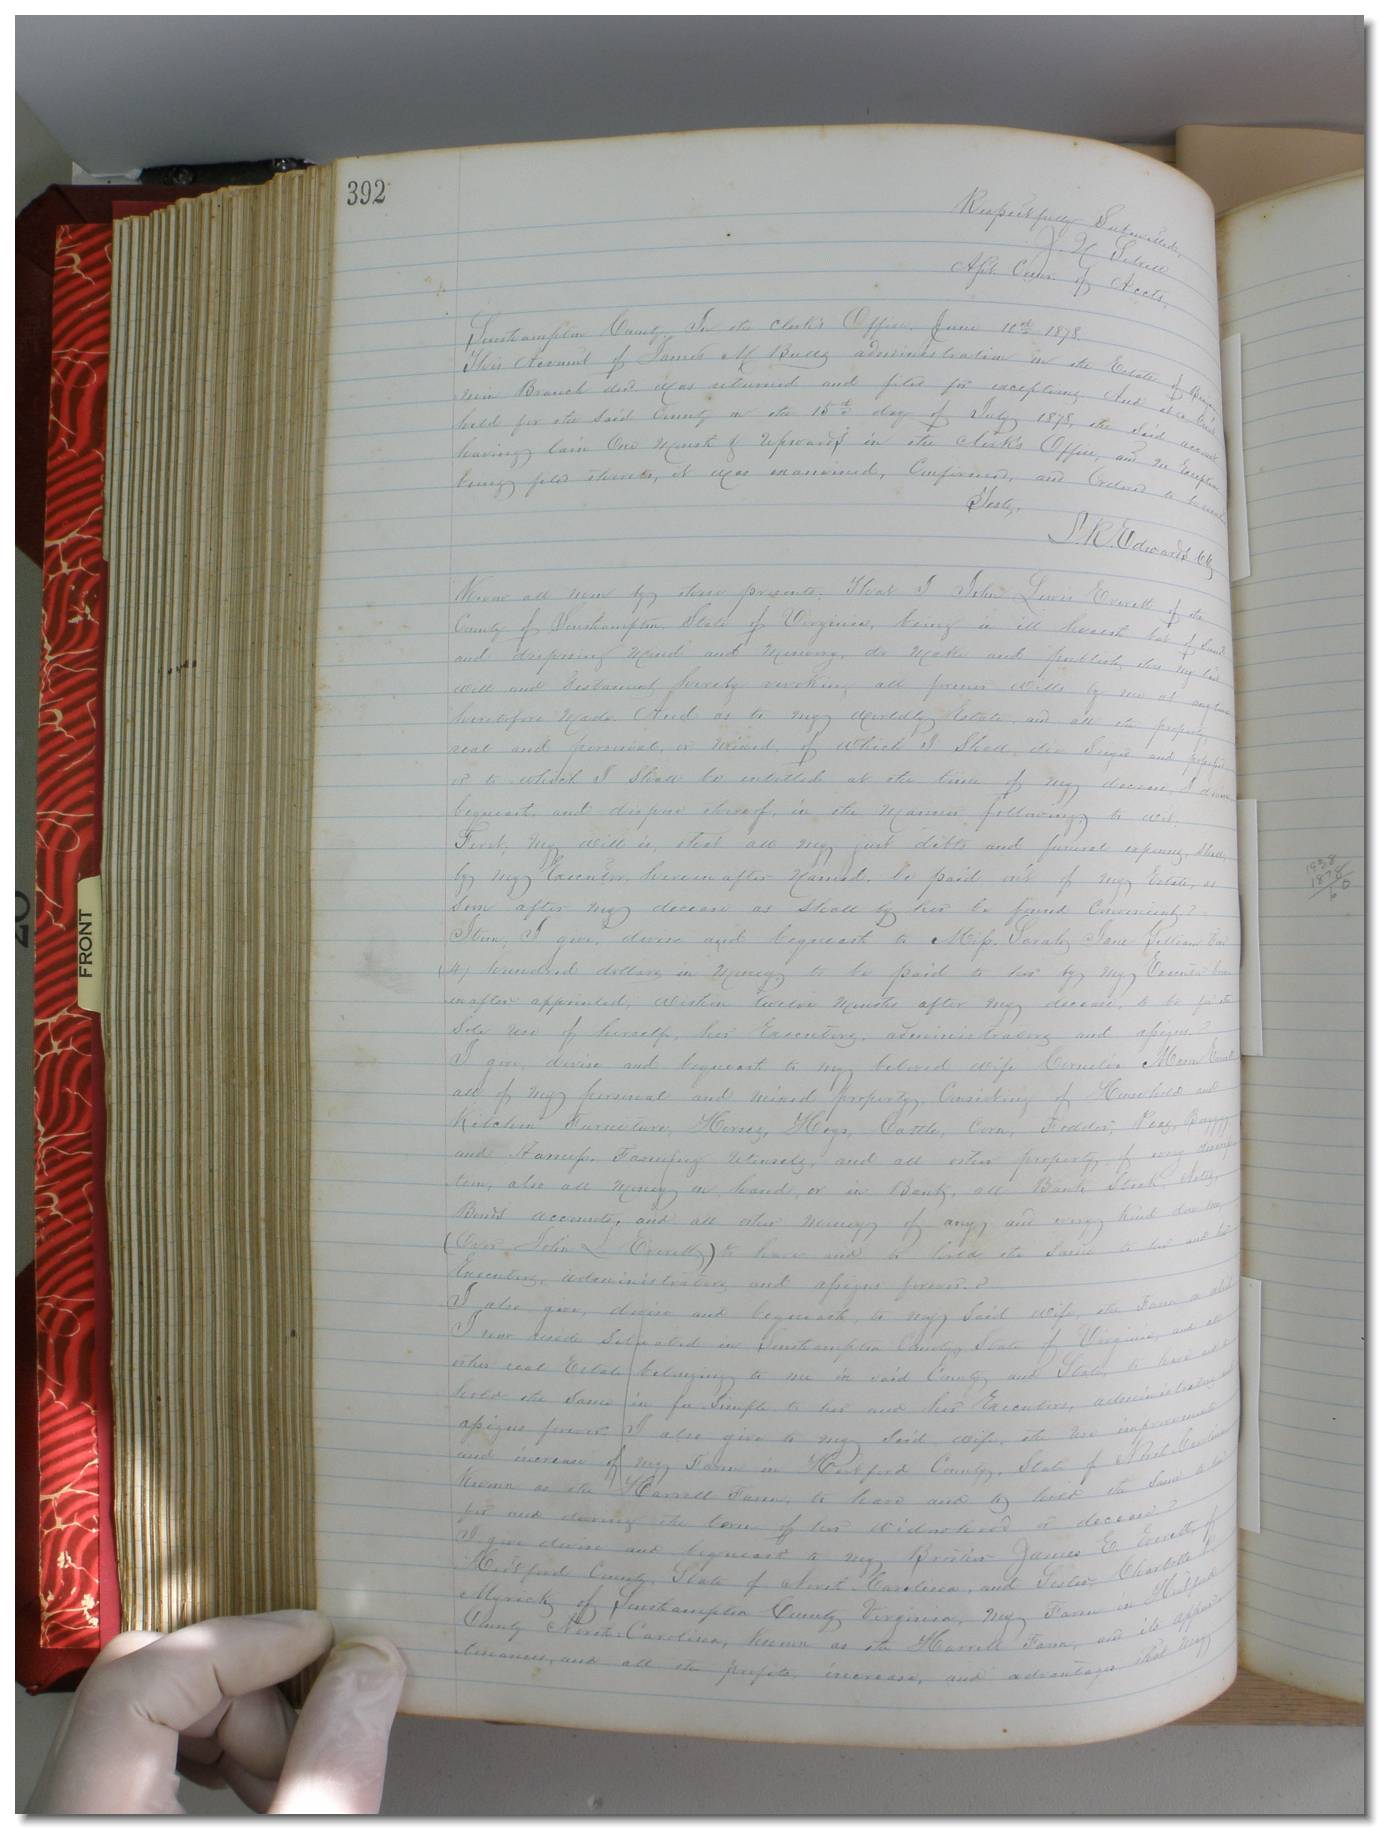 392
Respectfully Submitted,
J. N.
Asst. Comr of Accts,
Southampton County In the clerk's Office, June 10th 1878.
This Account of James M Bulls administration on the Estate of
Branch decd was returned and filed for exceptions And at a Court
held for the said County on the 15th day of July 1878, the said account
having lain One Month & Upwards in the Clerk's Office, and no Exceptions
being filed thereto, it was examined, Confirmed, and Ordered to be recorded
Teste,
L. R. Edwards Clk
Know all men by these presents, That I John Lewis Everett of the
County of Southampton, State of Virginia, being in ill health but of Sound
and disposing Mind and Memory, do Make and publish this My last
will and Testament, hereby revoking all former wills by me at any time
heretofore Made. And as to my worldly Estate, and all the property
real and personal, or Mixed, of which I Shall die Seized and possessed
or to which I Shall be entitled at the time of my decease, I devise
bequeath and dispose thereof, in the Manner following, to wit,
First, My will is, that all My just debts and funeral expenses, shall,
by my Executor, hereinafter Named, be paid out of my Estate, as
Soon after my decease as Shall by her be found Convenient.
Item, I give, devise and bequeath to Miss. Sarah Jane
hundred dollars in Money to be paid to her by my Executor herein
inafter appointed, within twelve Months after my decease, to be for the
Sole use of herself, her Executors, administrators and assigns.
I give, devise and bequeath to my beloved wife Cornelia Everett
all of my personal and mixed property, Consisting of Household and
Kitchen Furniture, Horses, Hogs, Cattle, Corn, Fodder, Peas, Buggy
and Harness, Farming Utensils, and all other property of every descrip
tion, also all Money on hand, or in Bank, all Bank Stock, Notes,
Bonds accounts, and all other Moneys of any, and every Kind due me,
(Over John L Everett) to have and to hold the Same to her and her
Executors, administrators and assigns forever.
I also give, devise and bequeath, to my Said wife, the Farm on which
I now reside Situated in Southampton County, State of Virginia, and all
other real Estate belonging to me in said County and State, to have and to
hold the Same in fee Simple to her and her Executors, administrators and
assigns forever I also give to my Said wife, the Use improvement
and increase of my Farm in Hertford County, State of North Carolina
Known as the Harrell Farm, to have and to hold the Same to her
for and during the term of her widowhood or decease.
I give devise and bequeath to my Brother James E. Everett, of
Hertford County, State of North Carolina, and Sister, Charlotte
Myrick of Southampton County Virginia, my Farm in Hertford
County North Carolina, Known as the Harrell Farm, and its appur
tenances, and all the profits, increase, and advantages that may
FRONT
1938
1878
60